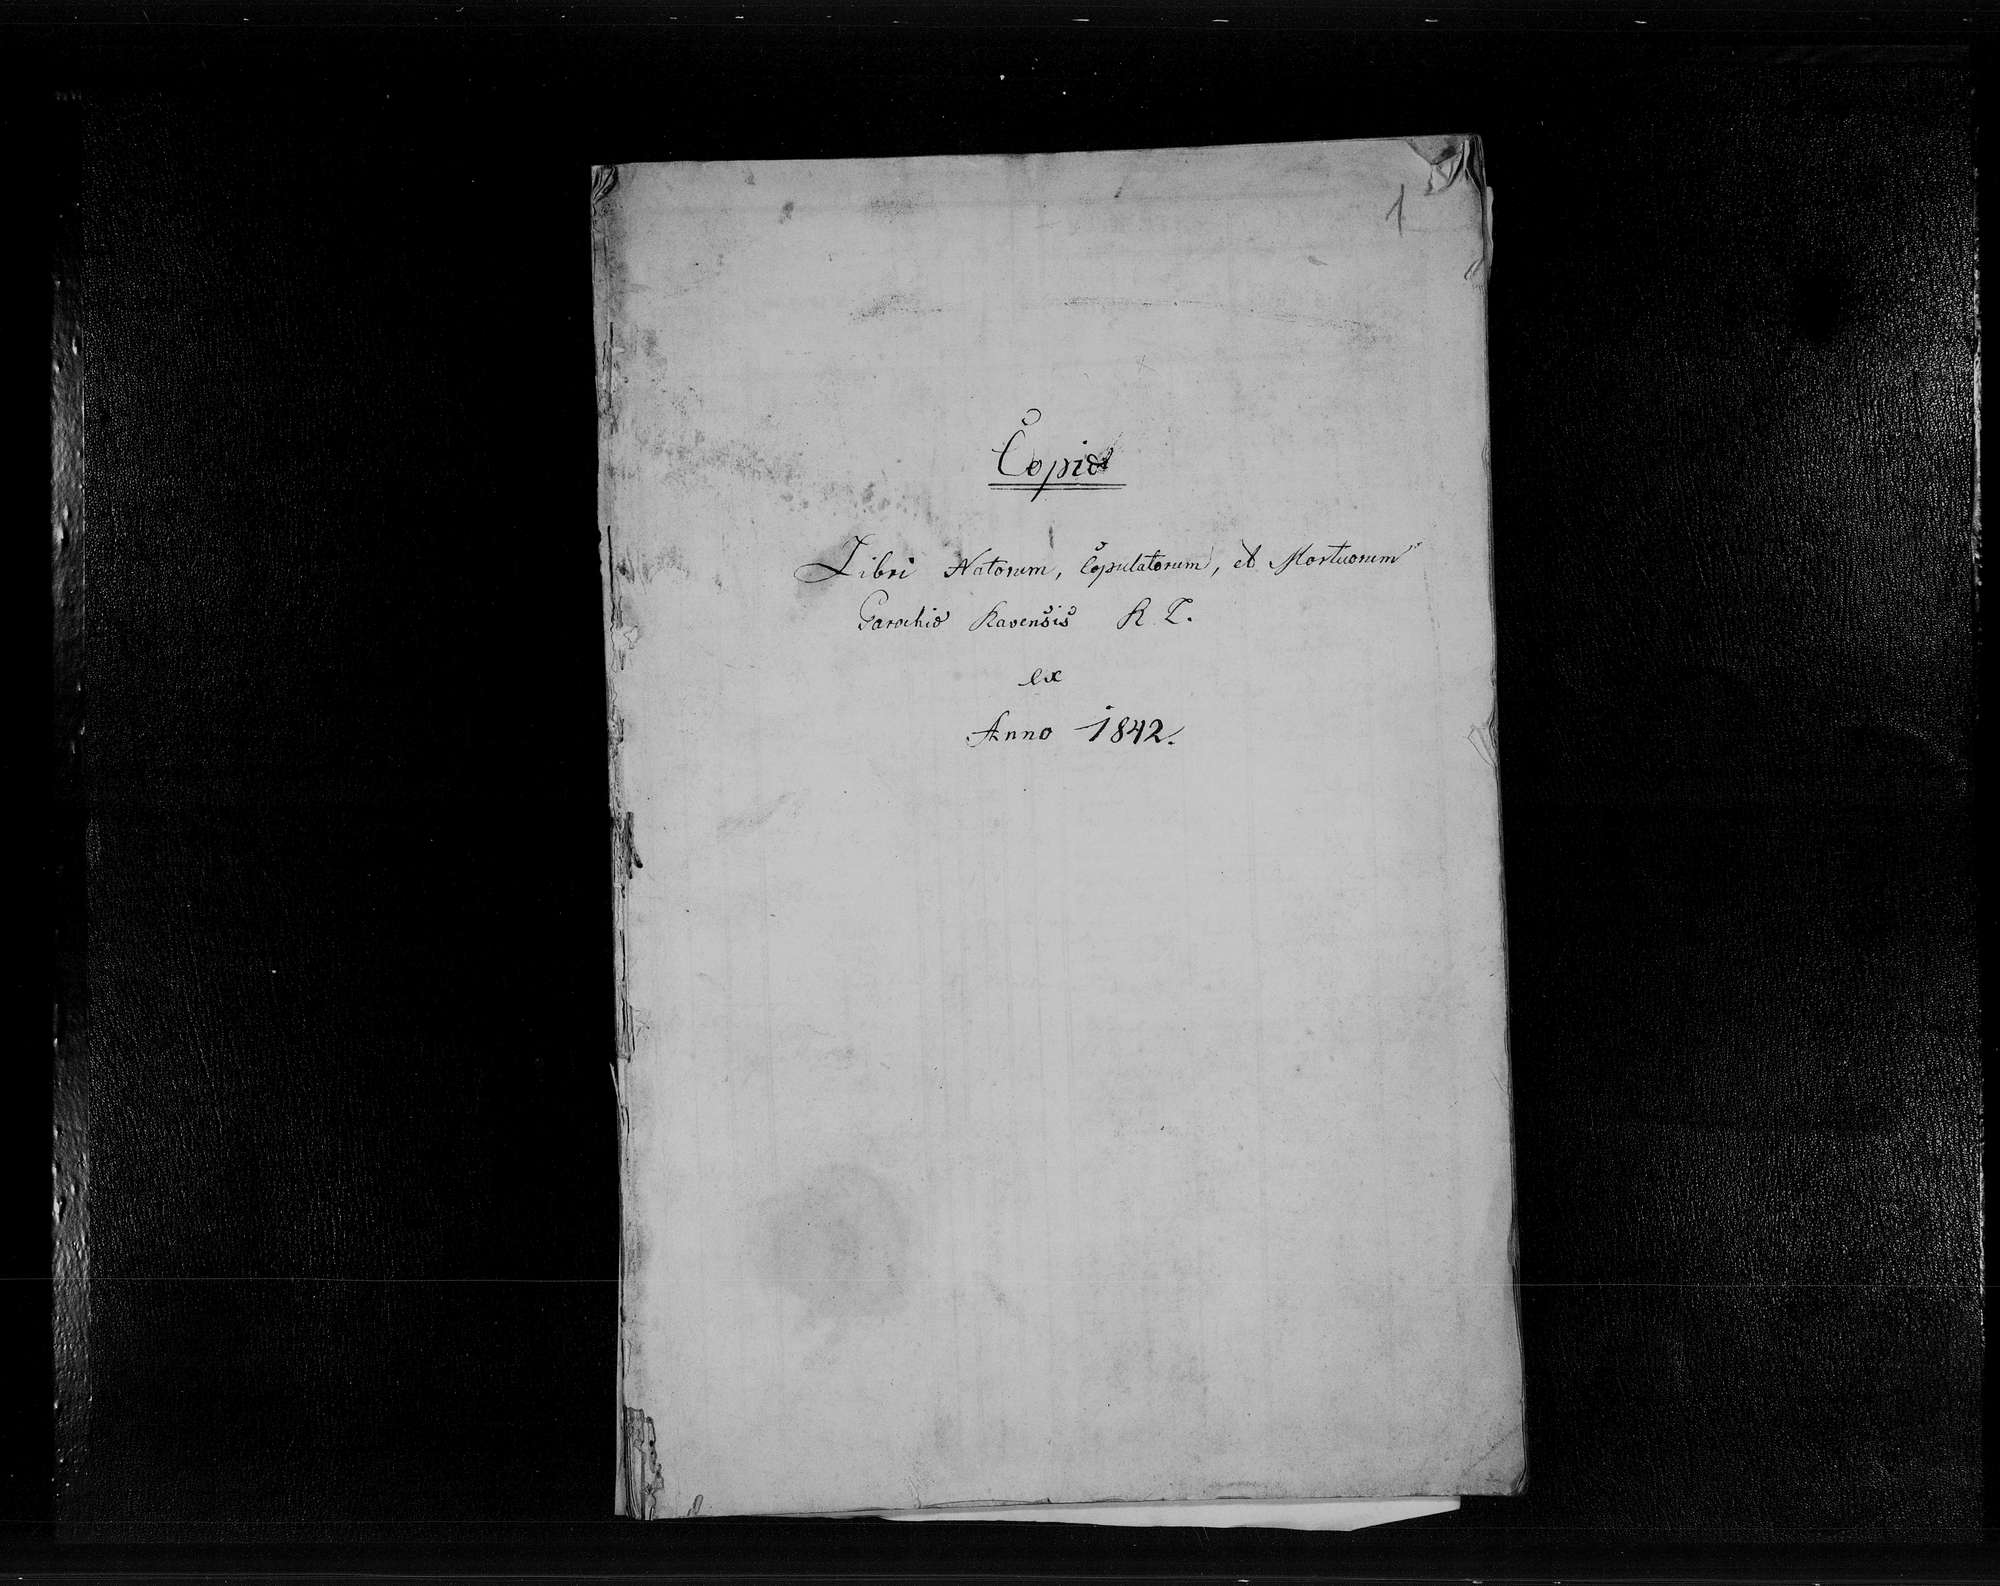 1
Copia
Libri Natorum, Copulatorum, et Mortuorum
Parochiæ Ravensis R. L.
ex
Anno 1842.